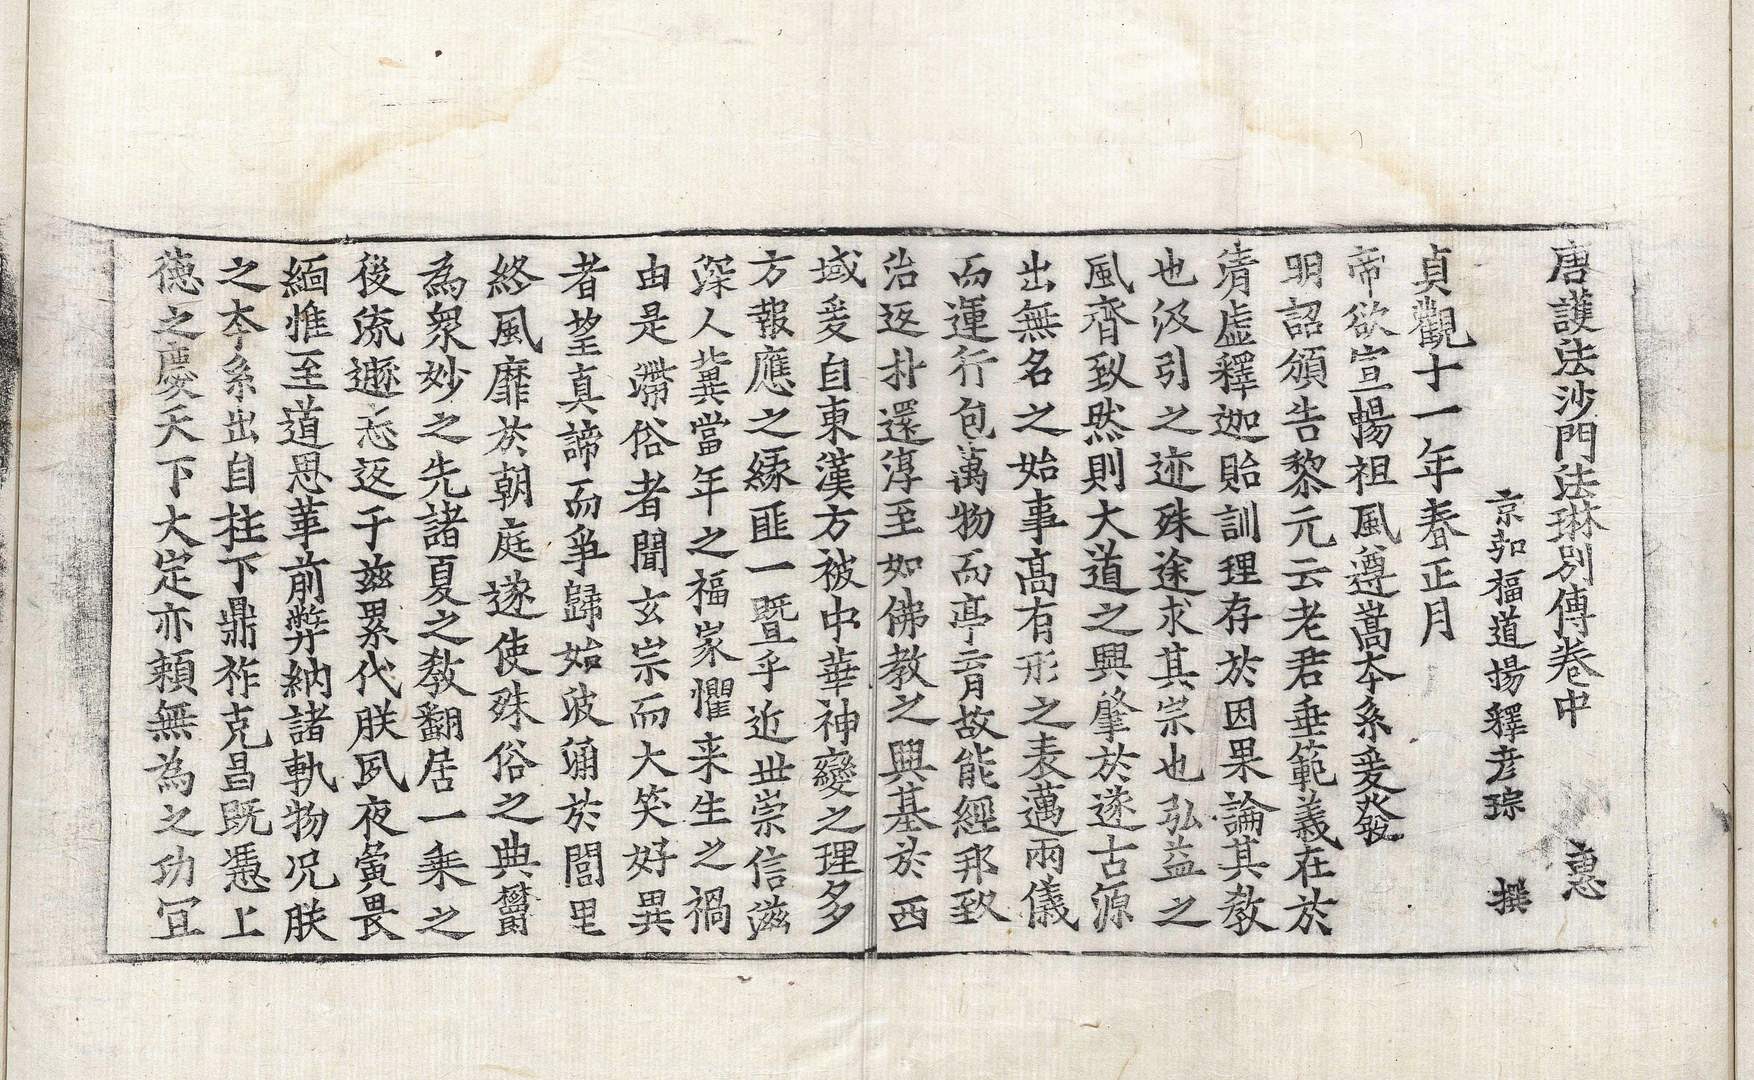 唐護法沙門法琳別傳卷中 惠
京弘福道場釋彥琮 撰
貞觀十一年春正月
帝欲宣暢祖風遵嵩本系爰發
明詔頒告黎元云老君垂範義在於
清虛釋迦貽訓理存於因果論其教
也汲引之迹殊途求其宗也弘益之
風齊致然則大道之興肇於遂古源
出無名之始事高有形之表邁兩儀
而運行包萬物而亭育故能經邦致
治返朴還淳至如佛教之興基於西
域爰自東漢方被中華神變之理多
方報應之緣匪一暨乎近世崇信滋
深人冀當年之福家懼来生之禍
由是滯俗者聞玄宗而大笑好異
者望真諦而爭歸始波涌於閭里
終風靡於朝庭遂使殊俗之典欝
為衆妙之先諸夏之教翻居一乘之
後流遯忘返于茲累代朕夙夜夤畏
緬惟至道思革前弊納諸軌物况朕
之本系出自柱下鼎祚克昌既憑上
德之慶天下大定亦賴無為之功冝